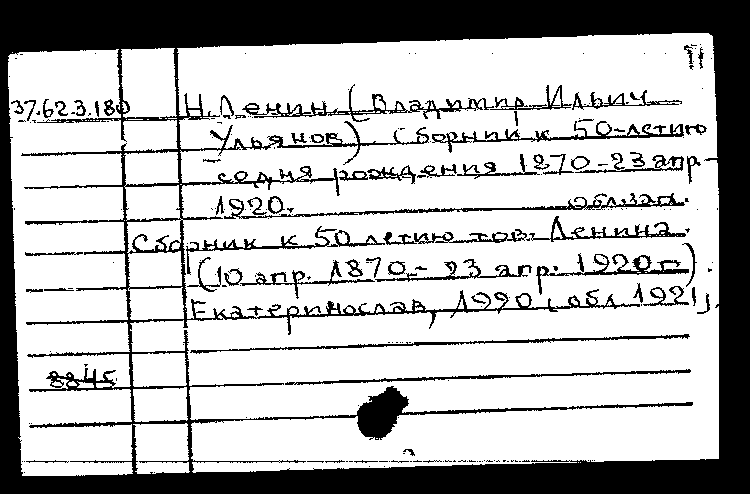 11
37.62.3.180 Н. Ленин (Владимир Ильич
Ульянов) Сборник к 50-летию
со дня рождения 1870-23 апр-
1920. обл.зал.
Сборник к 50 летию тов. Ленина.
(10 апр. 1870.- 23 апр. 1920 г.).
Екатеринослав, 1920 [обл 1921].
8845